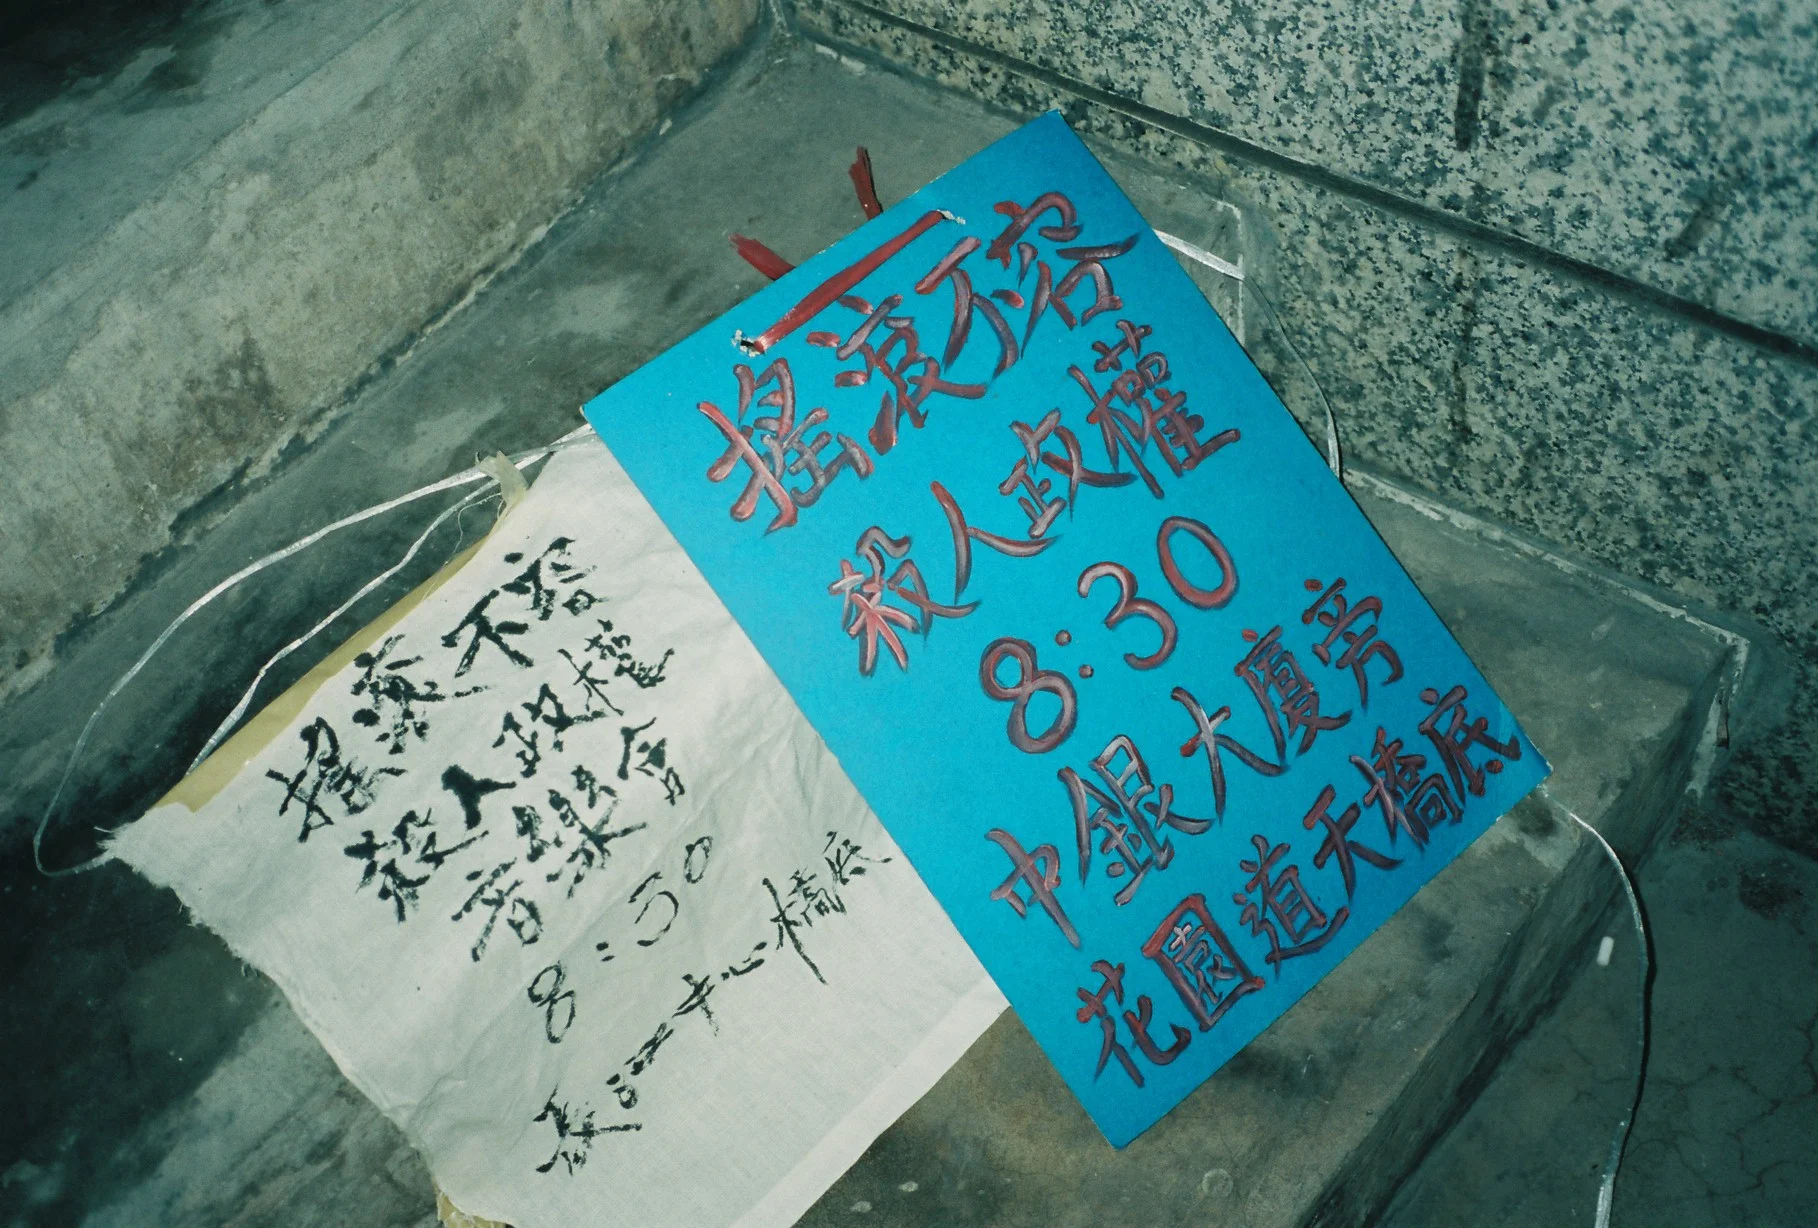 搖滾不容
殺人政權
音樂會
8:30
中心橋底
搖滾不容
殺人政權
8:30
中銀大廈旁
花園道天橋底